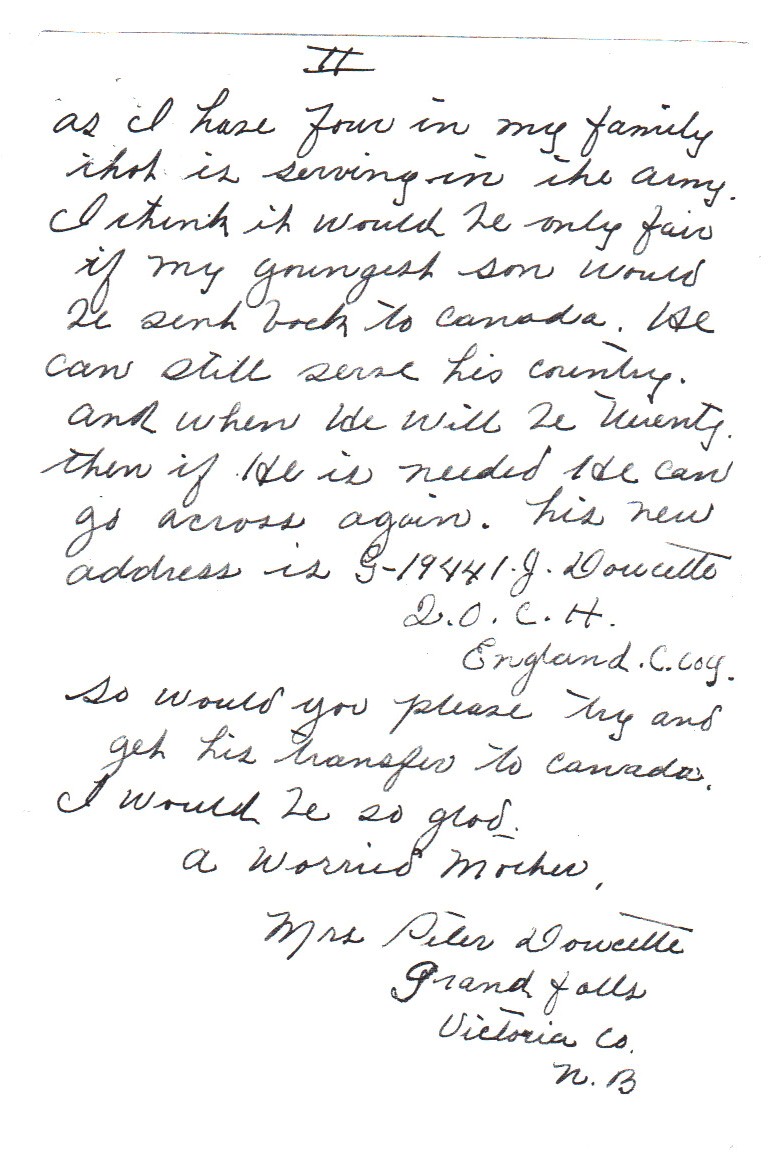 II
as I have four in my family
that is serving in the army.
I think it would be only fair
if my youngest son would
be sent back to Canada. He
can still serve his country.
and when He will be Twenty.
then if He is needed He can
go across again. his new
address is G-19441. J. Doucette
Q.O.C.H.
England. C. coy.
so would you please try and
get his transfer to Canada.
I would be so glad.
a Worried Mother,
Mrs Peter Doucette
Grand falls
Victoria Co.
N.B